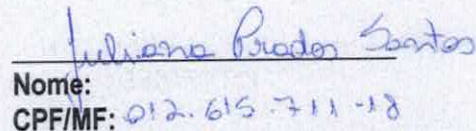 Juliana Prados Santos
Nome:
CPF/MF: 012.615.711-18